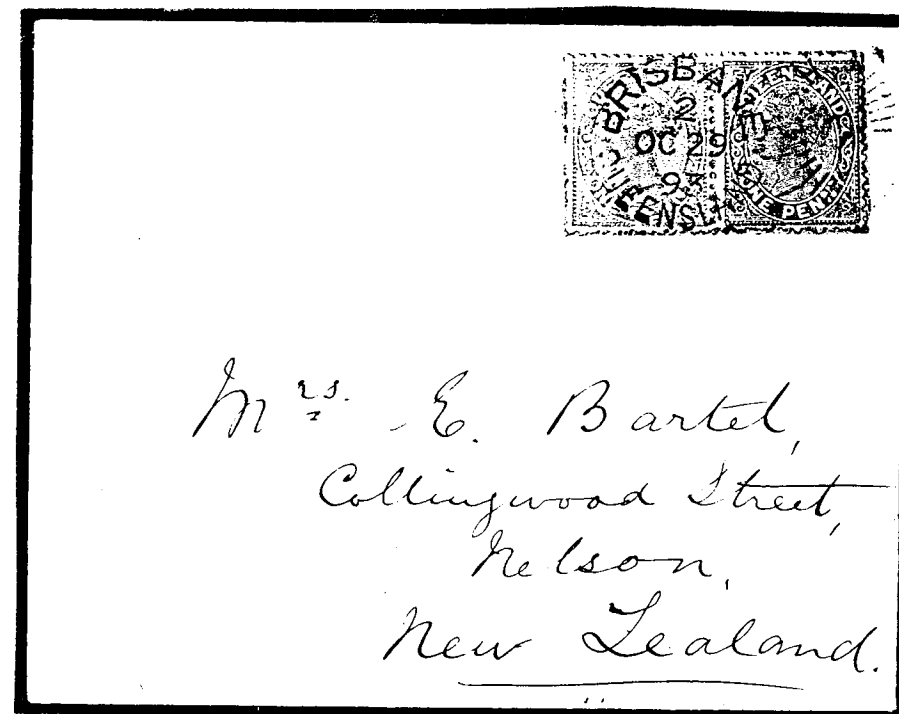 BRISBANE
2
OC 29
9
QUEENSLAND
QUEENSLAND
ONE PENNY
Mrs. E. Bartel,
Collingwood Street,
Nelson,
New Zealand.